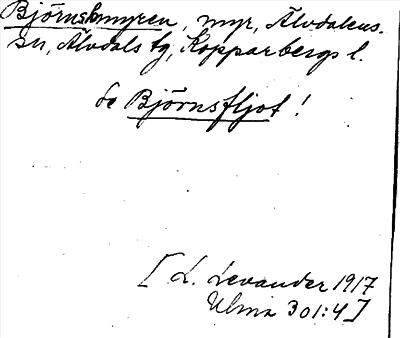 Björnskmyren, myr, Älvdalens
sn, Älvdals tg, Kopparbergs l.
se Björnsfljot!
[L. Levander 1917
Ulma 301:4]